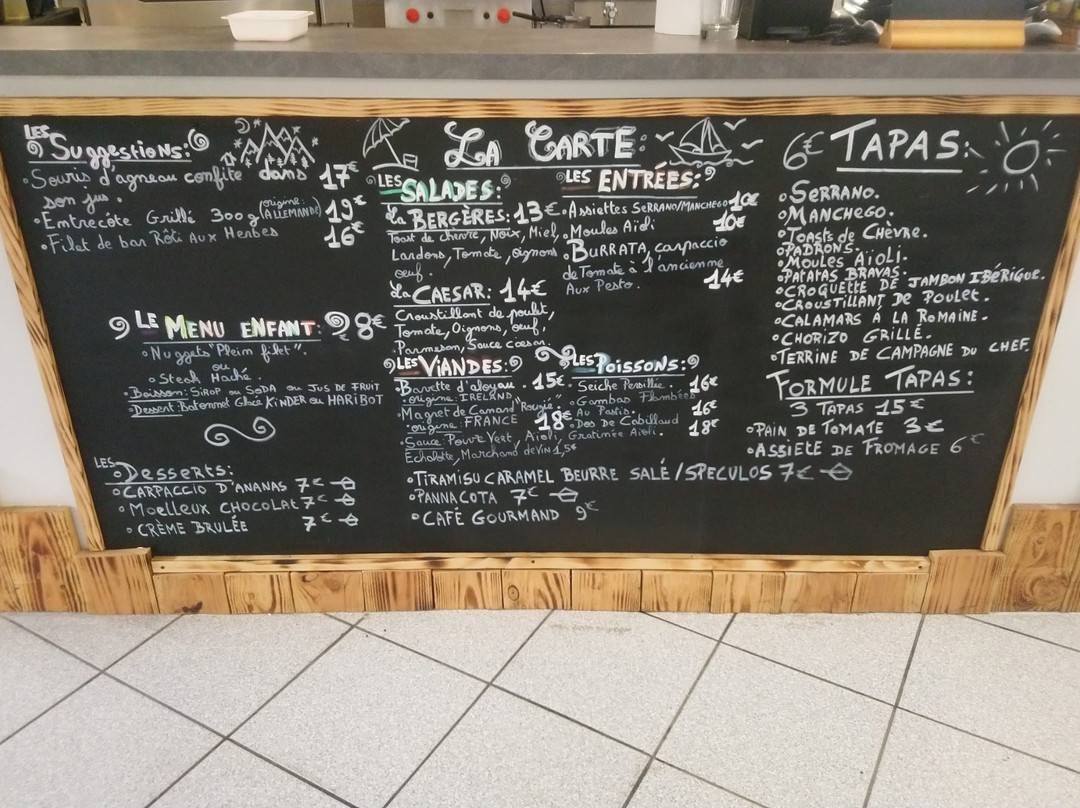 Les Suggestions:
• Souris d'agneau confite dans 17€
son jus.
• Entrecôte Grillé 300g (origine: ALLEMANDE) 19€
• Filet de bar Rôti Aux Herbes 16€
Le MENU ENFANT: 8€
• Nuggets "Plein filet".
ou
• Steak Haché.
• Boisson: SIROP ou SODA ou JUS DE FRUIT
• Dessert: Batonnet Glacé KINDER ou HARIBOT
LES Desserts:
• CARPACCIO D'ANANAS 7€
• Moelleux CHOCOLAT 7€
• CRÈME BRULÉE 7€
LA CARTE:
LES SALADES:
La BERGÈRES: 13€
Toast de chèvre, Noix, Miel,
Lardons, Tomate, oignons
oeuf.
La CAESAR: 14€
Croustillant de poulet,
Tomate, Oignons, oeuf,
Parmesan, Sauce caesar.
LES VIANDES:
Bavette d'aloyau. 15€
• origine: IRELAND
• Magret de Canard "Rougié".
• origine: FRANCE 18€
• Sauce: Poivre Vert, Aioli,
Echalotte, Marchand de Vin 1,5€
LES ENTRÉES:
• Assiettes SERRANO/MANCHEGO 10€
• Moules Aïoli 10€
• BURRATA, carpaccio
de Tomate à l'ancienne
Aux Pesto. 14€
Les Poissons:
• Seiche Persillée. 16€
• Gambas Flambées
Au Pastis. 16€
• Dos De Cabillaud 18€
Gratinée Aïoli.
• TIRAMISU CARAMEL BEURRE SALÉ/SPECULOS 7€
• PANNACOTA 7€
• CAFÉ GOURMAND 9€
6€ TAPAS:
• SERRANO.
• MANCHEGO.
• Toasts de CHÈVRE.
• PADRONS.
• Moules Aïoli.
• PATATAS BRAVAS.
• CROQUETTE DE JAMBON IBÉRIQUE.
• CROUSTILLANT DE POULET.
• CALAMARS À LA ROMAINE.
• CHORIZO GRILLÉ.
• TERRINE DE CAMPAGNE DU CHEF.
FORMULE TAPAS:
3 TAPAS 15€
• PAIN DE TOMATE 3€
• ASSIETE DE FROMAGE 6€